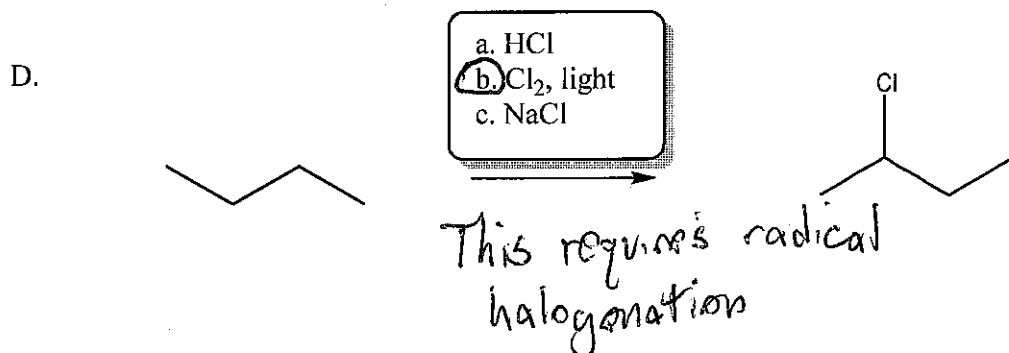 D.
a. HCl
b. Cl₂, light
c. NaCl
Cl
This requires radical
halogenation